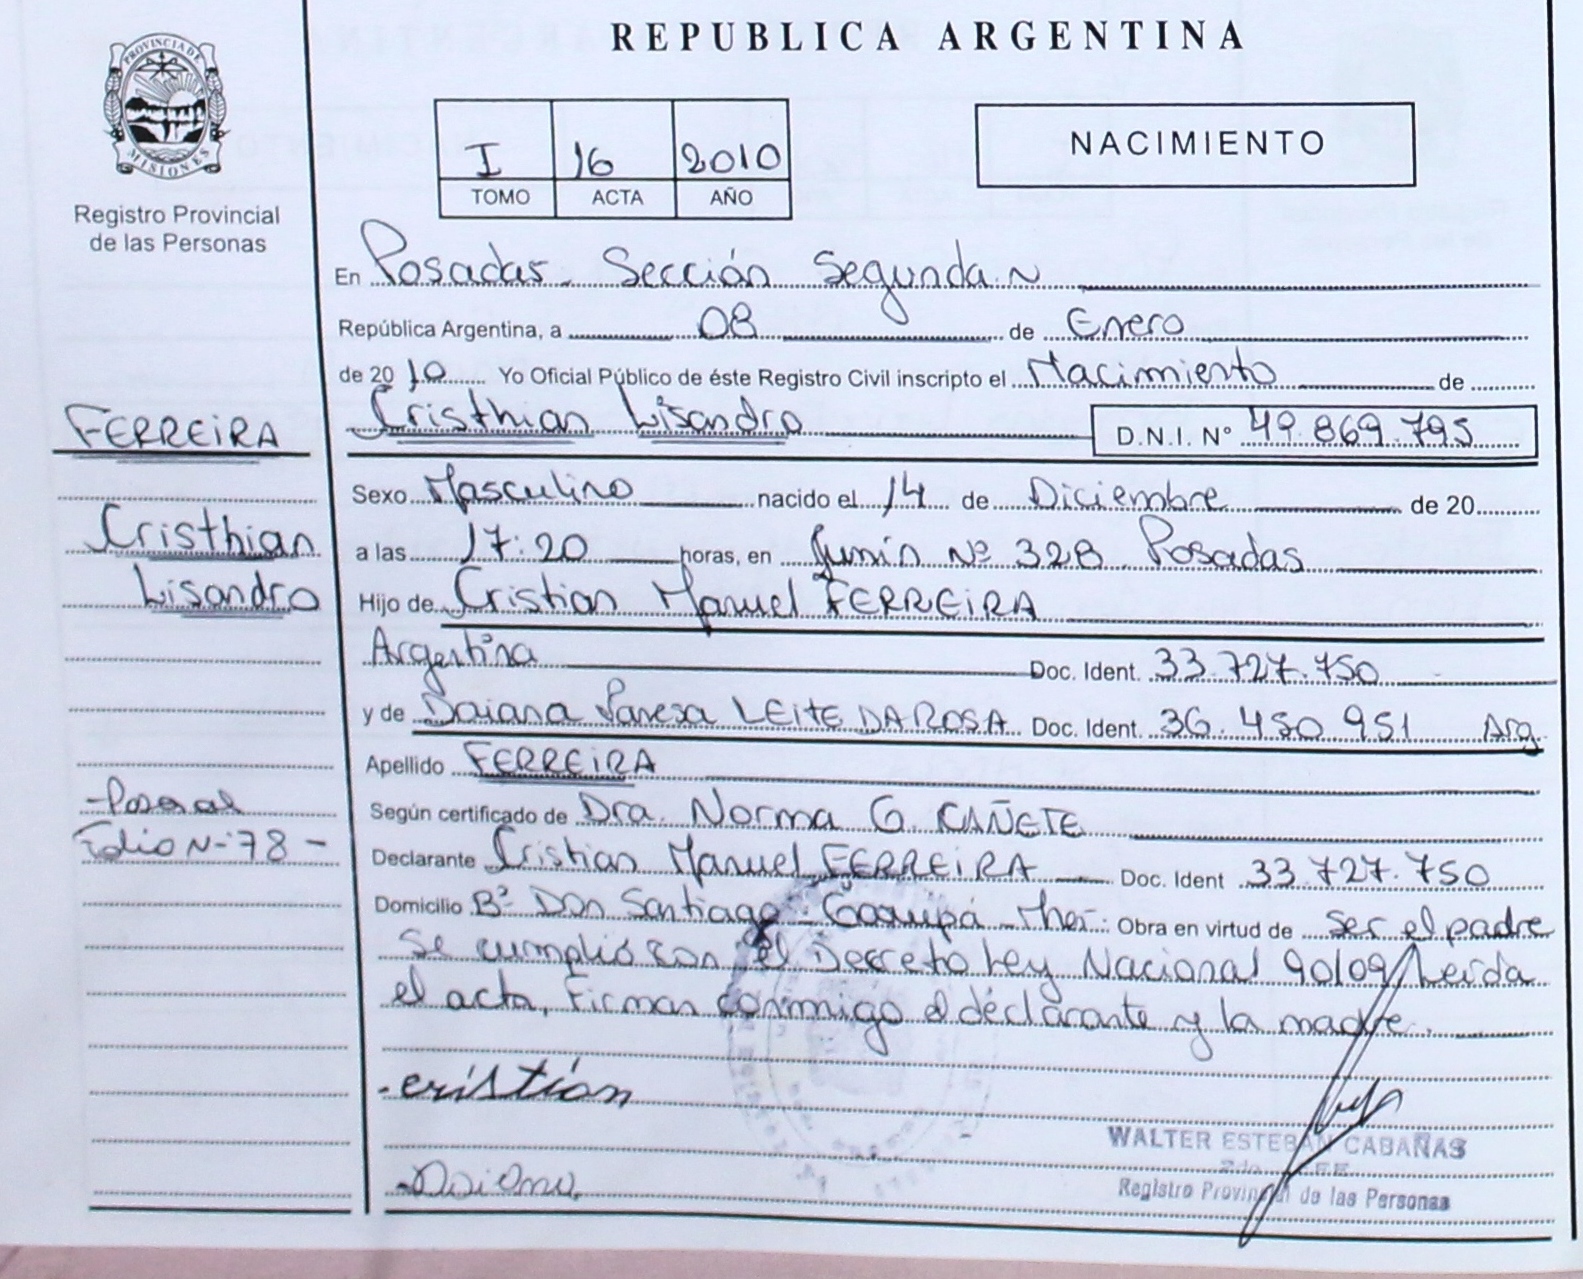 REPUBLICA ARGENTINA
PROVINCIA DE MISIONES
Registro Provincial
de las Personas
I 16 2010
TOMO ACTA AÑO
NACIMIENTO
En Posadas - Sección Segunda
República Argentina, a 08 de Enero
de 2010 Yo Oficial Público de éste Registro Civil inscripto el Nacimiento de
Cristhian Lisandro D.N.I. N° 49.869.795
FERREIRA
Sexo Masculino nacido el 14 de Diciembre de 20
Cristhian
a las 17:20 horas, en Junín Nº 328 Posadas
Lisandro
Hijo de Cristian Manuel FERREIRA
Argentina Doc. Ident. 33.727.750
y de Daiana Vanesa LEITE DA ROSA Doc. Ident. 36.450.951 Arg.
Apellido FERREIRA
Según certificado de Dra. Norma G. CAÑETE
Folio N- 78 -
Declarante Cristian Manuel FERREIRA Doc. Ident 33.727.750
Domicilio Bº Don Santiago - Garupá - Obra en virtud de ser el padre
Se cumplió con el Decreto Ley Nacional 90/09/ Leída
el acta, Firman conmigo el declarante y la madre.
cristian
WALTER ESTEBAN CABAÑAS
Registro Provincial de las Personas
Daiana